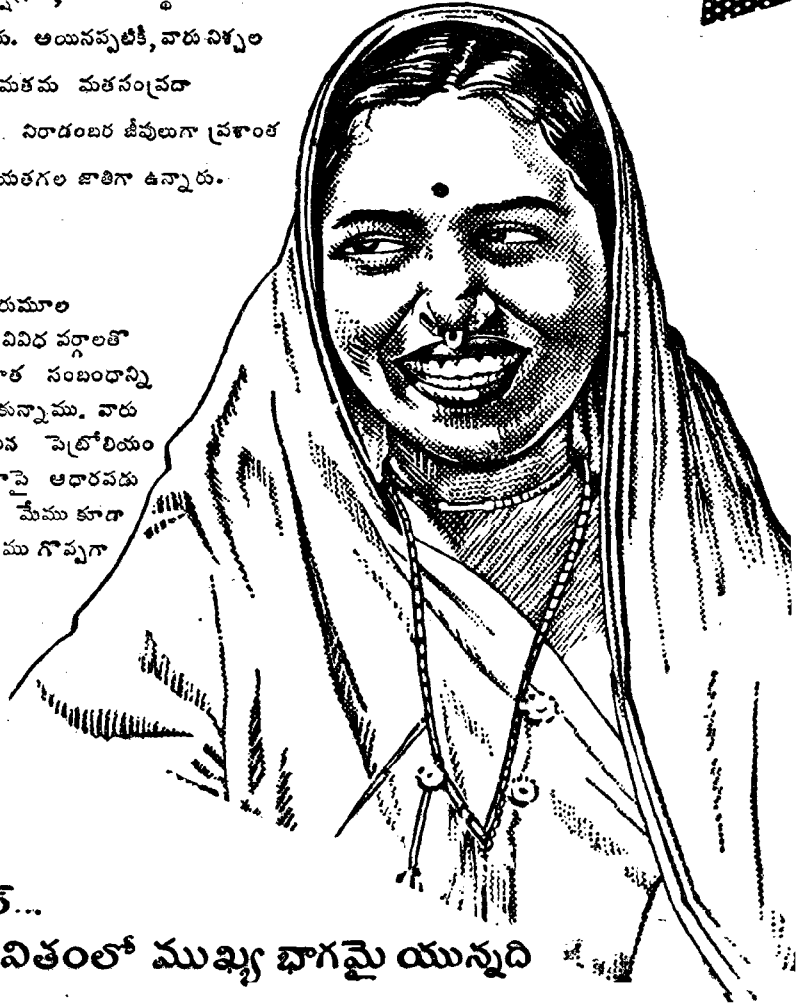 రు. ఆయినప్పటికీ, వారు నిశ్చల
మతమ మతసంప్రదా
. నిరాడంబర జీవులుగా ప్రశాంత
యతగల జాతిగా ఉన్నారు.
రుమూల
వివిధ వర్గాలతొ
ాత సంబంధాన్ని
కున్నాము. వారు
ున పెట్రోలియం
ాపై ఆధారపడు
మేము కూడా
ము గొప్పగా
వితంలో ముఖ్య భాగమై యున్నది